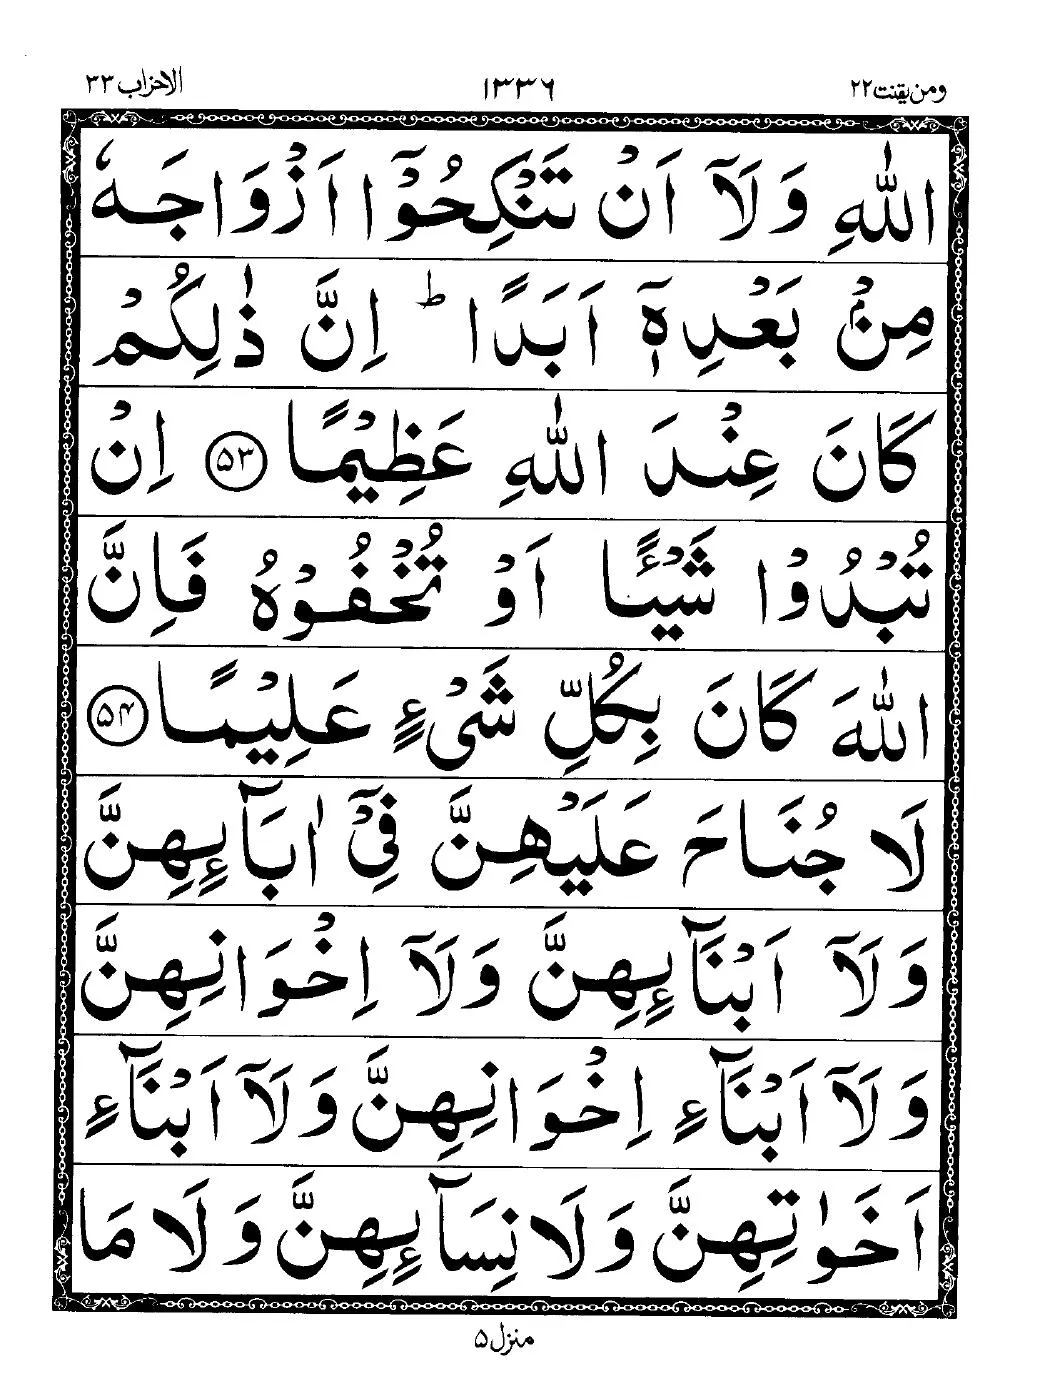 ومن یقنت ۲۲ ۱۳۳۶ الاحزاب ۳۳
اللّٰهِ وَلَاۤ اَنْ تَنْكِحُوْۤا اَزْوَاجَهٗ
مِنْۢ بَعْدِهٖۤ اَبَدًا ؕ اِنَّ ذٰلِكُمْ
كَانَ عِنْدَ اللّٰهِ عَظِيْمًا ۝۵۳ اِنْ
تُبْدُوْا شَيْـًٔا اَوْ تُخْفُوْهُ فَاِنَّ
اللّٰهَ كَانَ بِكُلِّ شَیْءٍ عَلِيْمًا ۝۵۴
لَا جُنَاحَ عَلَيْهِنَّ فِیْۤ اٰبَآىِٕهِنَّ
وَلَاۤ اَبْنَآىِٕهِنَّ وَلَاۤ اِخْوَانِهِنَّ
وَلَاۤ اَبْنَآءِ اِخْوَانِهِنَّ وَلَاۤ اَبْنَآءِ
اَخَوٰتِهِنَّ وَلَا نِسَآىِٕهِنَّ وَلَا مَا
منزل ۵